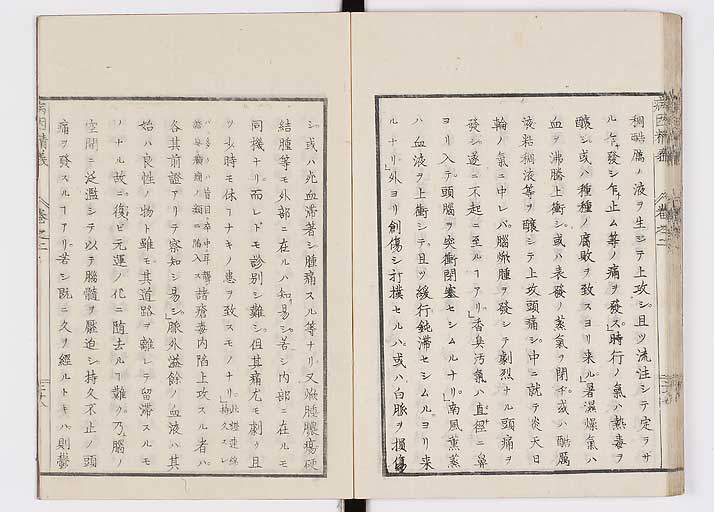 稠酷厲ノ液ヲ生シテ上攻シ且ツ流注シテ定ラサ
ル乍発シ乍止ム等ノ痛ヲ發ス」時行ノ氣ハ熱毒ヲ
釀シ或ハ種種ノ腐敗ヲ致スヨリ来ル」暑濕燥氣ハ
血ヲ沸騰上衝シ或ハ表發ノ蒸氣ヲ閉チ或ハ酷厲
液粘稠液等ヲ釀シテ上攻頭痛シ中ニ就テ炎天日
輪ノ氣ニ中レバ腦焮腫ヲ發シテ劇烈ナル頭痛ヲ
發シ遂ニ不起ニ至ルヿアリ」香臭汚氣ハ直徑ニ鼻
ヨリ入テ頭腦ヲ突衝閉塞セシムルナリ」南風薫蒸
ハ血液ヲ上衝シテ且ツ緩行鈍滞セシムルヨリ来
ルナリ」外ヨリ創傷シ打撲セルハ或ハ白脈ヲ損傷
病因精義
卷之二
シ或ハ死血滞著シ腫痛スル等ナリ又焮腫膿瘍硬
結腫等モ外部ニ在ルハ知リ易シ若シ内部ニ在ルモ
同機ナリ而レドモ診別シ難シ但其痛尤モ劇ク且
ツ少時モ休ムヿナキノ患ヲ致スモノナリ
諸瘡毒内陷上攻スル者ハ
各其前證アリテ察知シ易シ」脈外溢餘ノ血液ハ其
始ハ良性ノ物ト雖モ其道路ヲ離レテ留滞スルモ
ノナル故ニ復ヒ元運ノ化ニ隨去ルヿ難ク乃腦ノ
空間ニ泛濫シテ以テ腦髓ヲ壓迫シ持久不止ノ頭
痛ヲ發スルヿアリ若シ既ニ久ヲ經ルトキハ則鬱
病因精義
卷之二
二十八